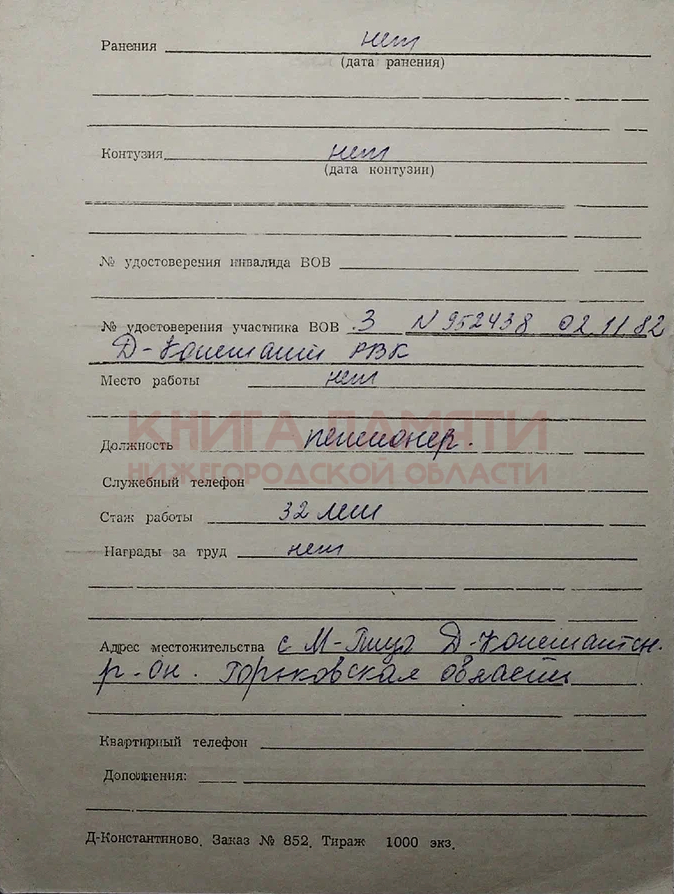 Ранения нет
(дата ранения)
Контузия нет
(дата контузии)
№ удостоверения инвалида ВОВ
№ удостоверения участника ВОВ 3 N 952438 02 11 82
Д-Констант РВК
Место работы нет
КНИГА ПАМЯТИ
Должность пенсионер.
НИЖЕГОРОДСКОЙ ОБЛАСТИ
Служебный телефон
Стаж работы 32 лет
Награды за труд нет
Адрес местожительства с М-Пица Д-Константин.
р-он. Горьковская области
Квартирный телефон
Дополнения:
Д-Константиново. Заказ № 852. Тираж 1000 экз.